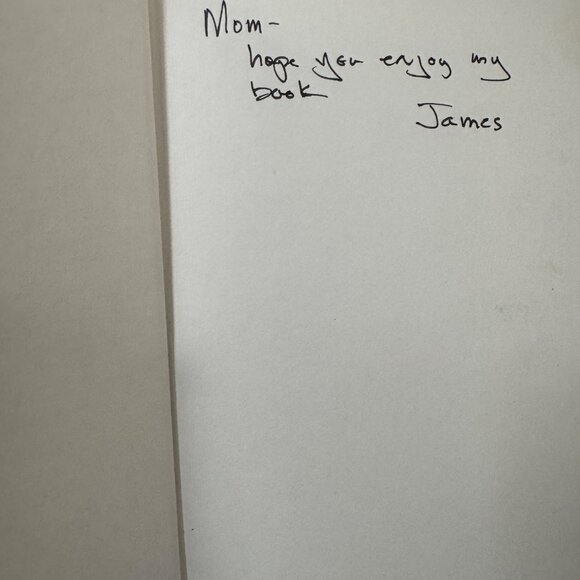 Mom-
hope you enjoy my
book
James